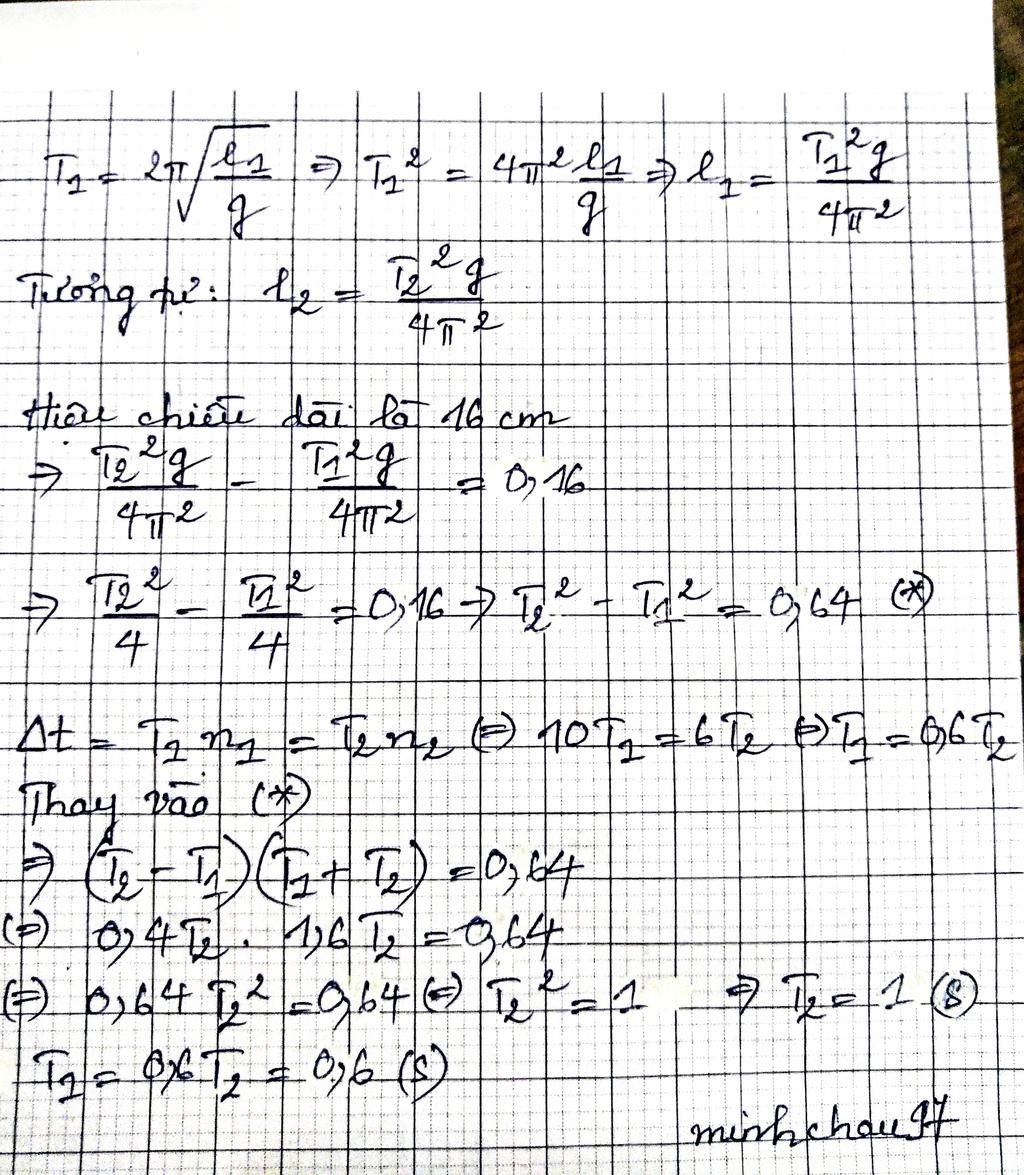 T₁ = 2π√(l₁/g) ⇒ T₁² = 4π² l₁/g ⇒ l₁ = T₁²g/4π²
Tương tự: l₂ = T₂²g/4π²
Hiệu chiều dài là 16 cm
⇒ T₂²g/4π² - T₁²g/4π² = 0,16
⇒ T₂²/4 - T₁²/4 = 0,16 → T₂² - T₁² = 0,64 (*)
Δt = T₁n₁ = T₂n₂ (=) 10T₁ = 6T₂ (=) T₁ = 0,6T₂
Thay vào (*)
⇒ (T₂ - T₁)(T₁ + T₂) = 0,64
(=) 0,4T₂ . 1,6T₂ = 0,64
(=) 0,64 T₂² = 0,64 (=) T₂² = 1 ⇒ T₂ = 1 (s)
T₁ = 0,6T₂ = 0,6 (s)
minhchau97